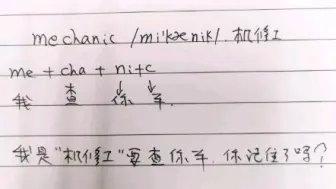 mechanic /mi'kænik/. 机修工
me + cha + ni+c
我 查 你 车.
我是"机修工"要查你车.你记住了吗?